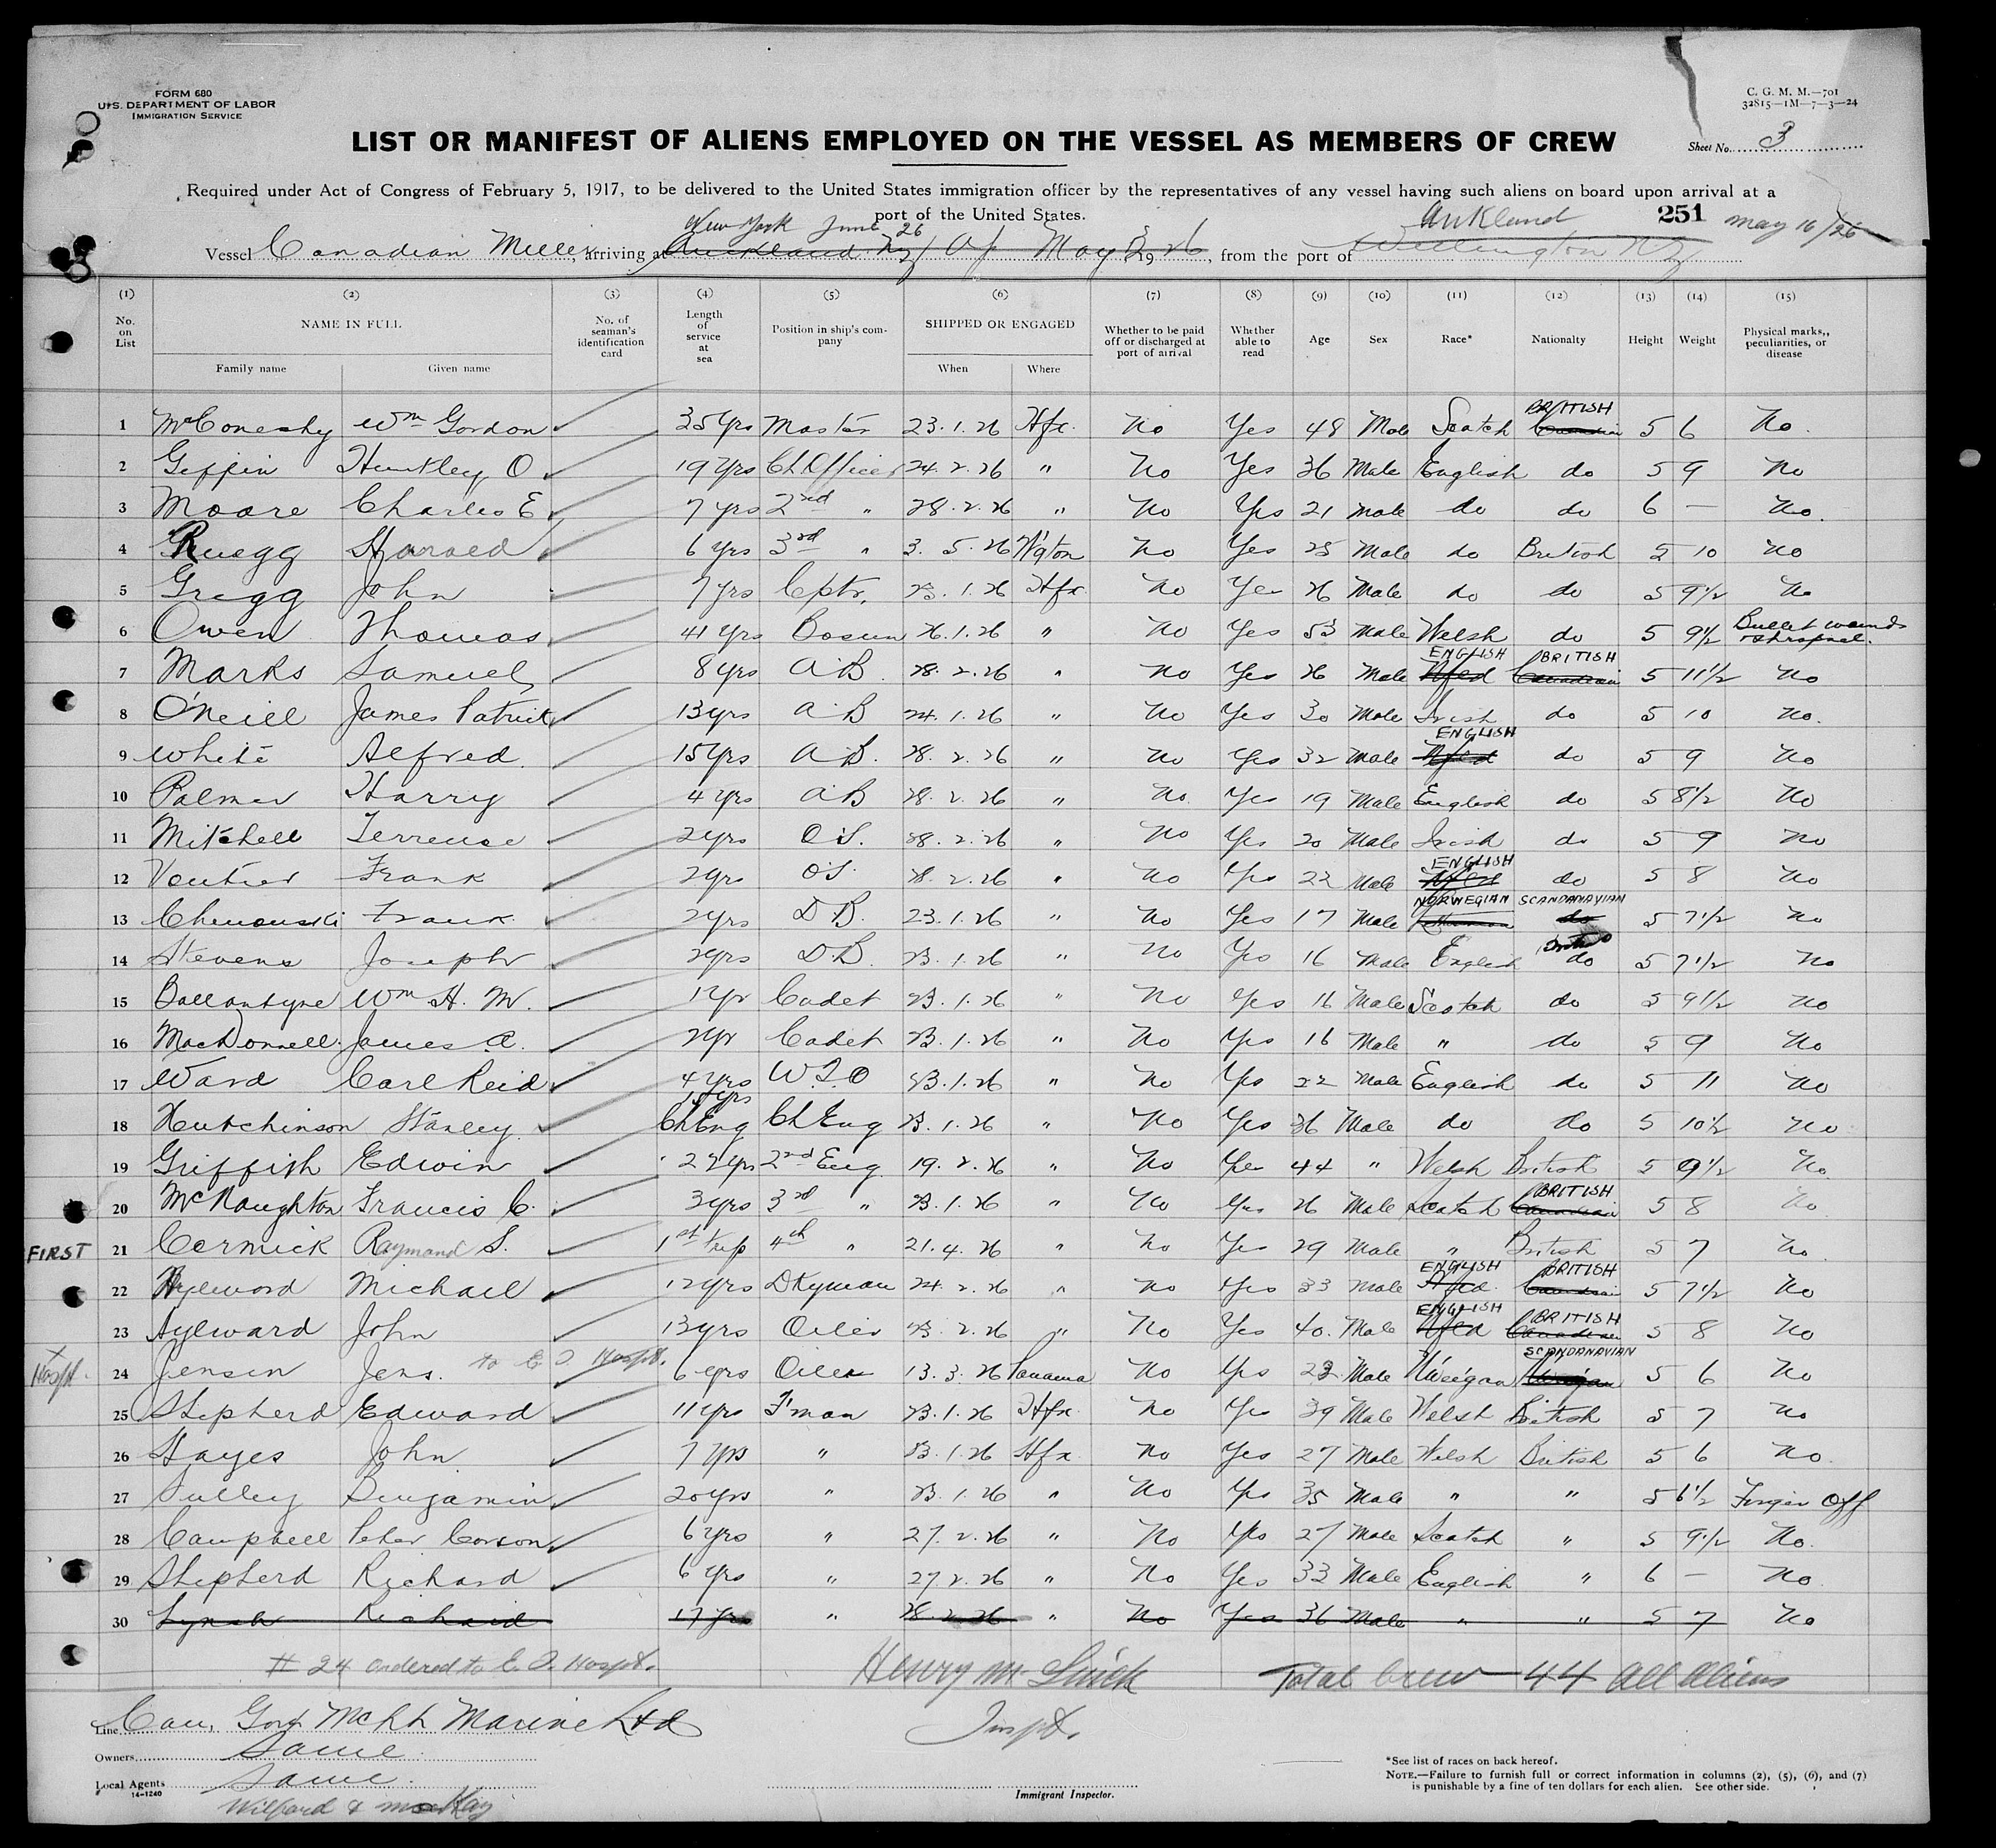 FORM 680
U.S. DEPARTMENT OF LABOR
IMMIGRATION SERVICE
C. G. M. M.—701
32815—1M—7—3—24
LIST OR MANIFEST OF ALIENS EMPLOYED ON THE VESSEL AS MEMBERS OF CREW
Sheet No. 3
Required under Act of Congress of February 5, 1917, to be delivered to the United States immigration officer by the representatives of any vessel having such aliens on board upon arrival at a
port of the United States.
New York June 26 Auckland 251 May 16/26
Vessel Canadian Miller, arriving at Auckland NZ May 1926, from the port of Wellington NZ
(1) (2) (3) (4) (5) (6) (7) (8) (9) (10) (11) (12) (13) (14) (15)
No. on List NAME IN FULL No. of seaman's identification card Length of service at sea Position in ship's company SHIPPED OR ENGAGED Whether to be paid off or discharged at port of arrival Whether able to read Age Sex Race* Nationality Height Weight Physical marks, peculiarities, or disease
Family name Given name When Where
1 McConechy Wm Gordon 35 yrs Master 23.1.26 Hfx. No Yes 48 Male Scotch BRITISH Canadian 5 6 No.
2 Giffin Huntley O. 19 Yrs Ch Officer 24.2.26 " No Yes 36 Male English do 5 9 No
3 Moore Charles E. 7 yrs 2nd " 28.2.26 " No Yes 21 Male do do 6 — No.
4 Ruegg Harold 6 yrs 3rd " 3.5.26 W'gton No Yes 25 Male do British 5 10 No
5 Gregg John 7 yrs Cptr. 23.1.26 Hfx. No Yes 26 Male do do 5 9½ No
6 Owen Thomas 41 yrs Bosun 26.1.26 " No Yes 53 Male Welsh do 5 9½ Bullet wounds & shrapnel.
7 Marks Samuel 8 yrs A.B. 28.2.26 " No Yes 26 Male ENGLISH Nfld BRITISH Canadian 5 11½ No
8 O'Neill James Patrick 13 yrs A.B 24.1.26 " No Yes 30 Male Irish do 5 10 No.
9 White Alfred 15 yrs A.B. 28.2.26 " No Yes 32 Male ENGLISH Nfld do 5 9 No
10 Palmer Harry 4 yrs A.B 28.2.26 " No Yes 19 Male English do 5 8½ No
11 Mitchell Terrence 2 yrs O.S. 28.2.26 " No Yes 20 Male Irish do 5 9 No
12 Frank 2 yrs O.S. 28.2.26 " No Yes 22 Male ENGLISH Nfld do 5 8 No
13 Frank 2 yrs D.B. 23.1.26 " No Yes 17 Male NORWEGIAN SCANDANAVIAN do 5 7½ No
14 Stevens Joseph 2 yrs D.B. 23.1.26 " No Yes 16 Male English British do 5 7½ No
15 Ballantyne Wm H. M. 1 yr Cadet 23.1.26 " No Yes 16 Male Scotch do 5 9½ No
16 MacDonnell James A. 2 yr Cadet 23.1.26 " No Yes 16 Male " do 5 9 No
17 Ward Carl Reid 4 yrs W.T.O 23.1.26 " No Yes 22 Male English do 5 11 No
18 Hutchinson Stanley Ch Eng Ch Eng 23.1.26 " No Yes 36 Male do do 5 10½ No
19 Griffith Edwin 22 yrs 2nd Eng. 19.2.26 " No Yes 44 " Welsh British 5 9½ No.
20 McNaughton Francis C. 3 yrs 3rd " 23.1.26 " No Yes 26 Male Scotch BRITISH Canadian 5 8 No
FIRST 21 Cormick Raymond S. 1st trip 4th " 21.4.26 " No Yes 29 Male " British 5 7 No.
22 Michael 12 yrs Dkyman 24.2.26 " No Yes 33 Male ENGLISH Nfld. BRITISH Canadian 5 7½ No
23 Aylward John 13 yrs Oiler 23.2.26 " No Yes 40. Male ENGLISH Nfld BRITISH Canadian 5 8 No
x Hospt. 24 Jensen Jens. to E. I. Hospt. 6 yrs Oiler 13.3.26 Panama No Yes 23 Male N'wegan SCANDANAVIAN 5 6 No
25 Shepherd Edward 11 yrs F'man 23.1.26 Hfx. No Yes 39 Male Welsh British 5 7 No
26 Hayes John 7 yrs " 23.1.26 Hfx. No Yes 27 Male Welsh British 5 6 No.
27 Benjamin 20 yrs " 23.1.26 " No Yes 35 Male " " 5 6½ Finger Off
28 Campbell Peter Corson 6 yrs " 27.2.26 " No Yes 27 Male Scotch " 5 9½ No.
29 Shepherd Richard 6 yrs " 27.2.26 " No Yes 33 Male English " 6 — No.
30 Lynch Richard 17 yrs " 28.2.26 " No Yes 36 Male " " 5 7 No
# 24 ordered to E. I. Hospt. Henry M. Total Crew — 44 All Aliens
Line Can. Govt Mcht Marine Ltd Inspt.
Owners Same
Local Agents Same.
14-1240
Wilford & McKay
Immigrant Inspector.
*See list of races on back hereof.
NOTE.—Failure to furnish full or correct information in columns (2), (5), (6), and (7)
is punishable by a fine of ten dollars for each alien. See other side.